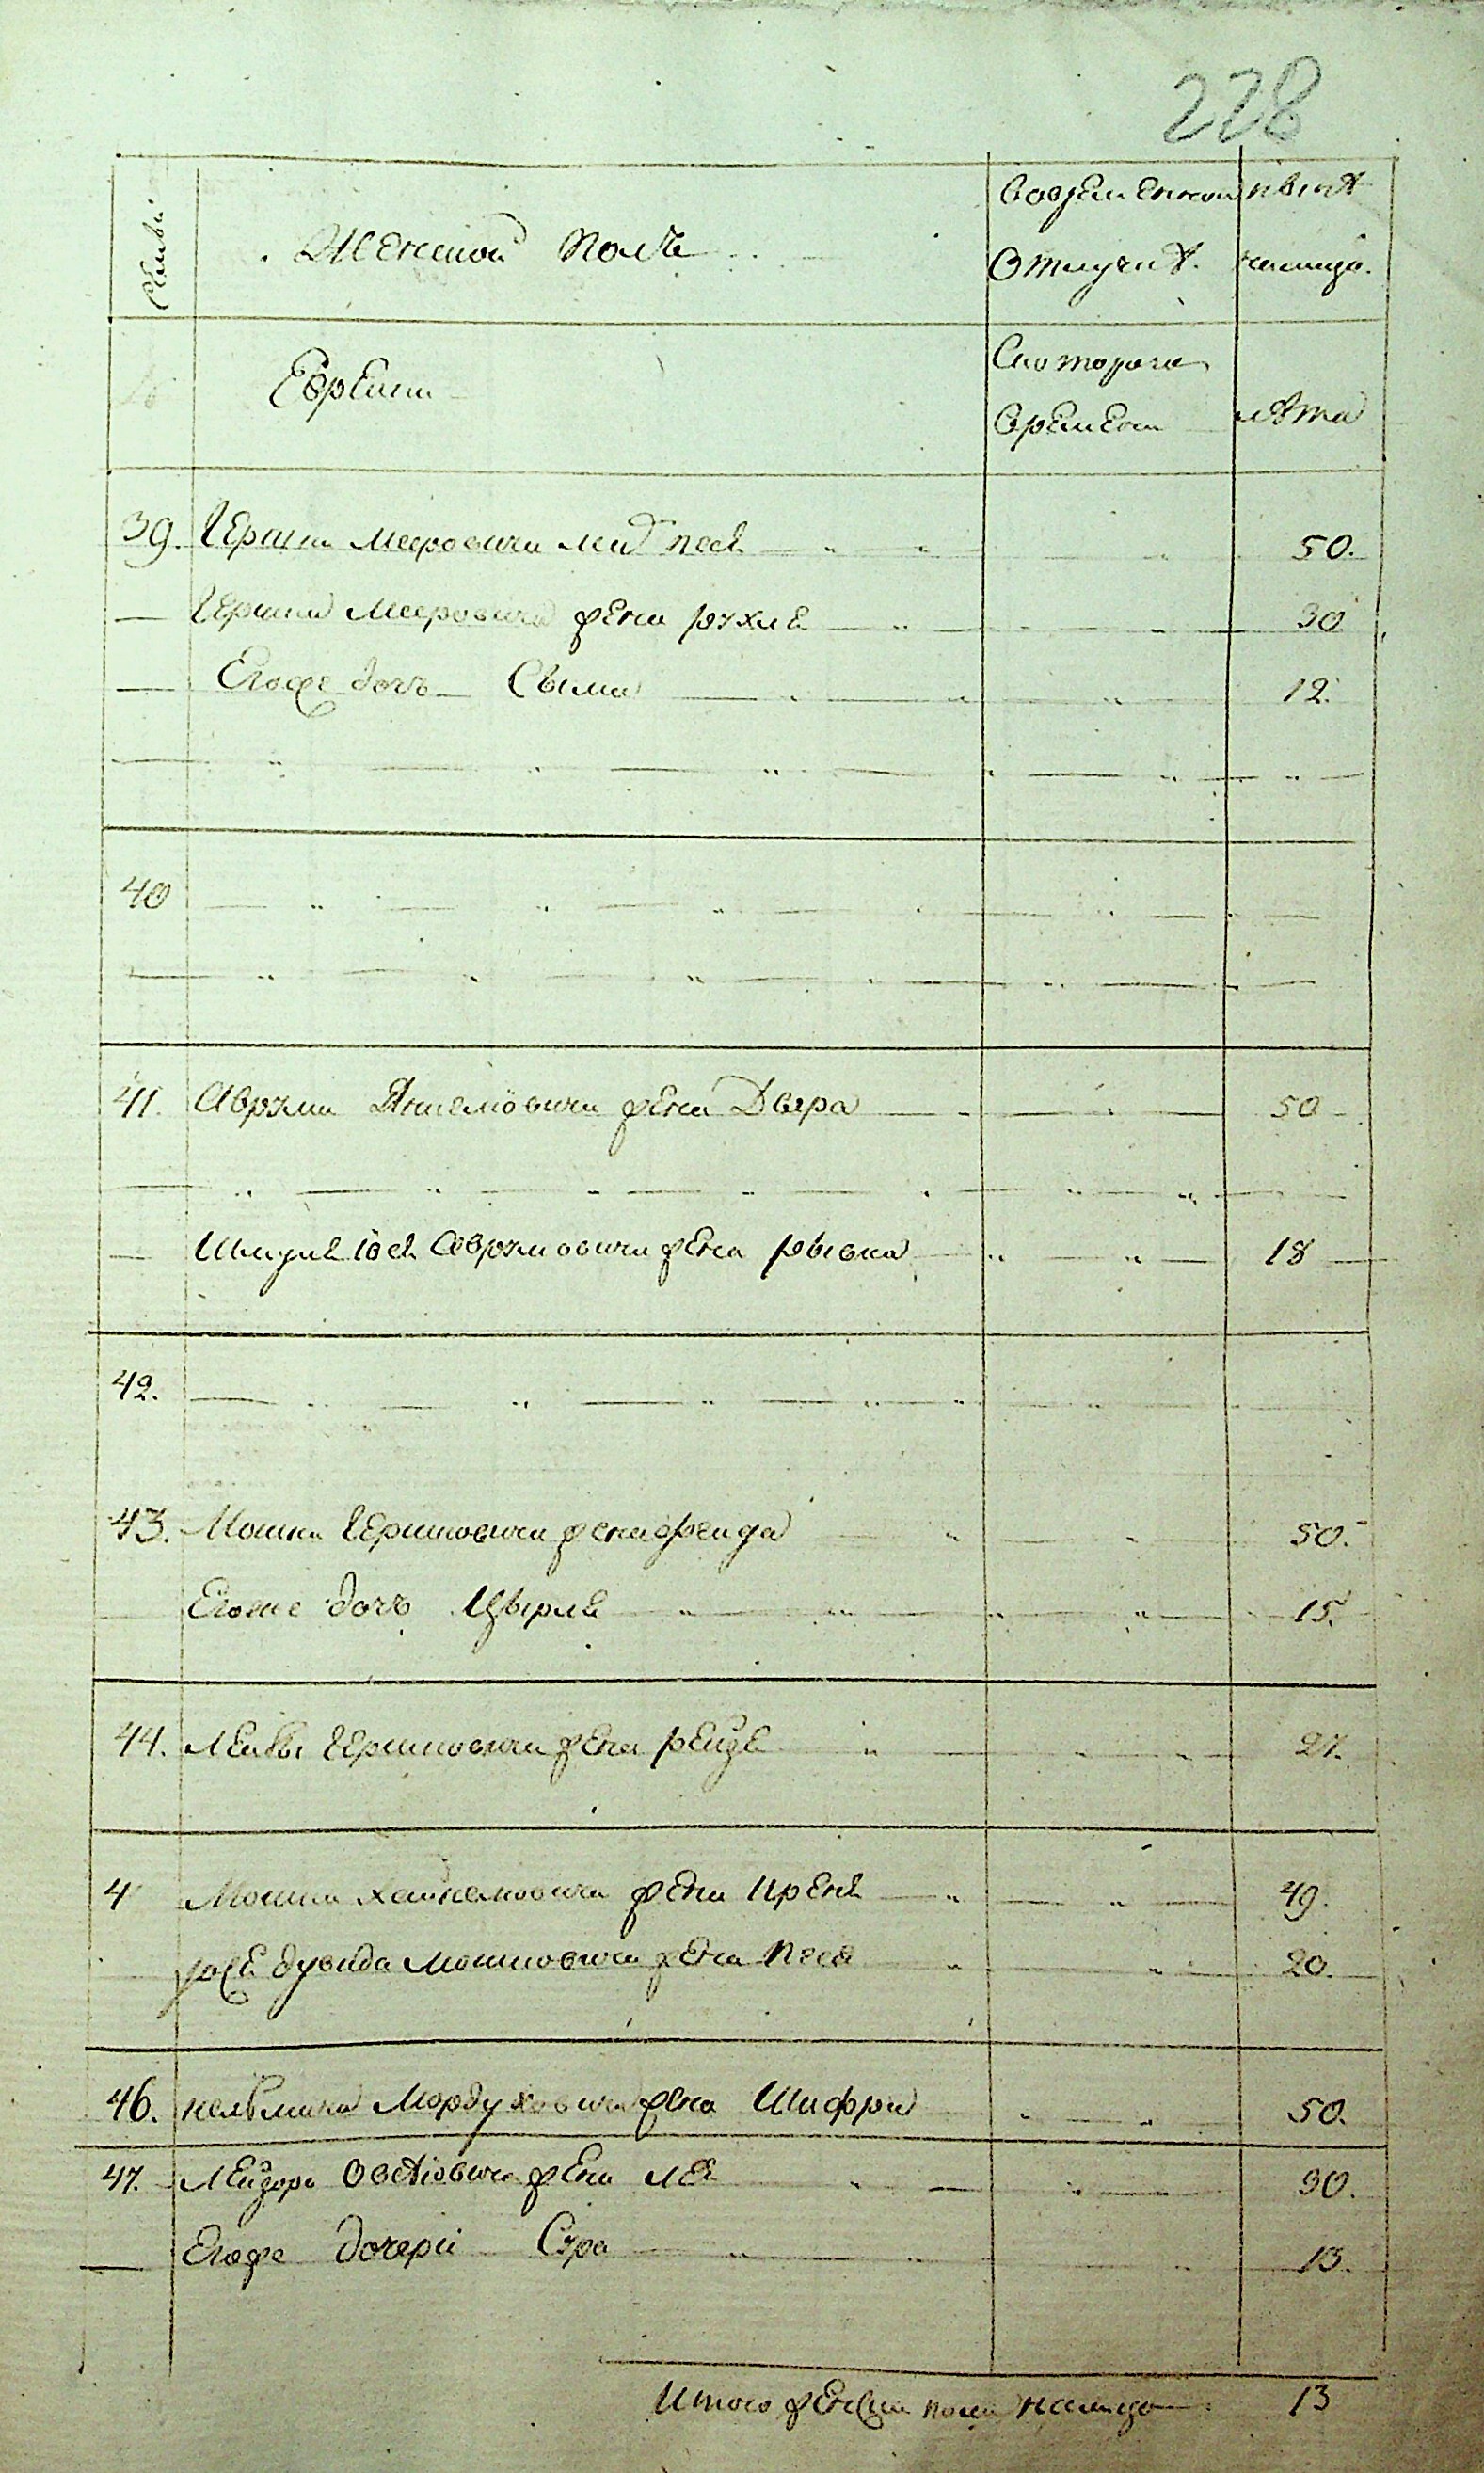 228
Семьи
Женской Полъ
Во временной
нынѣ
Отлучкѣ.
налицо.
Евреии
Скоторого
Времени
лѣта
39. Гершки Мееровича мать песе 50.
Гершка Мееровича жена рухле 30
Егоже дочь Сыма 12.
40
41. Аврума Янкелiовича жена Двера 50
Шмуле iосе Аврумовича жена рывка 18
42.
43. Мошки Гершковича жена фейда 50.
Егоже дочь Цырле 15.
44. Лейбы Гершковича жена рейзе 27.
4 Мошки Хаикелновича жена Ирене 49.
дувида Мошковича жена Песе 20.
46. кельмана Мордуховича жена Шифра 50.
47. Лейзора Овсѣовича жена лея 30.
Егоже дочери Сура 13.
Итого женска пола налицо 13